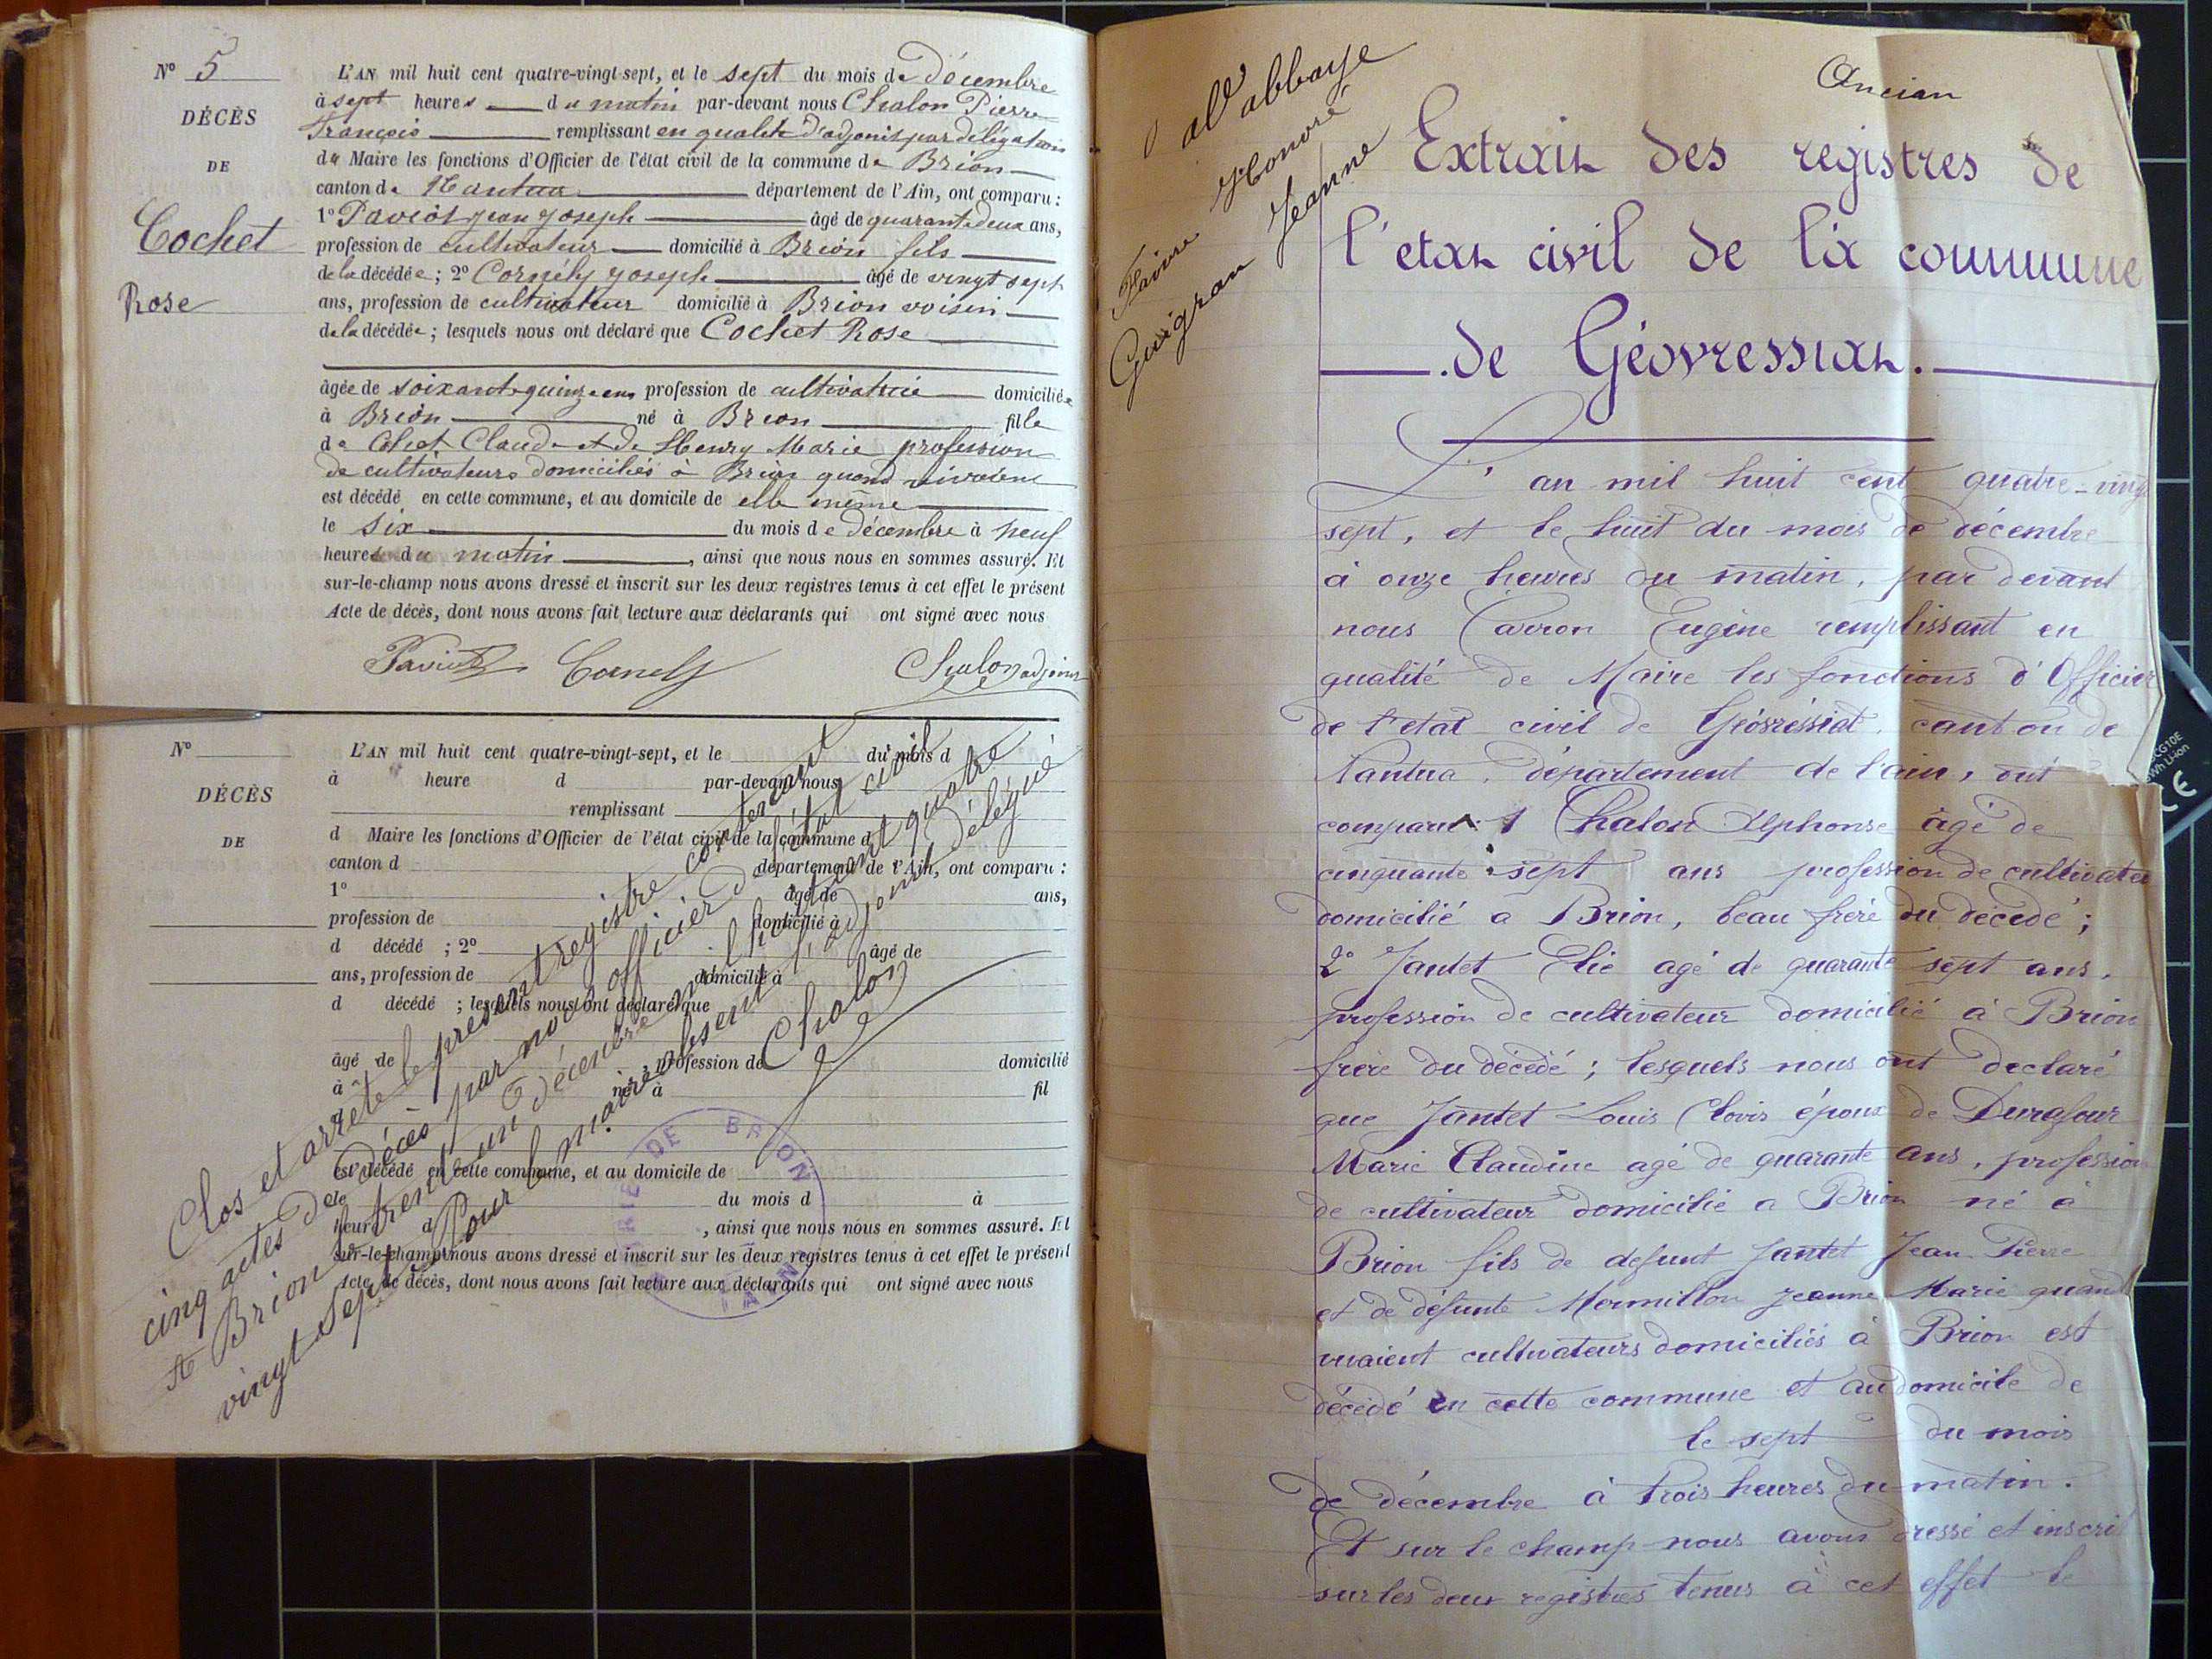 N° 5
DÉCÈS
DE
Cochet
Rose
L'AN mil huit cent quatre-vingt-sept, et le sept du mois de décembre
à sept heures du matin par-devant nous Chalon Pierre
François remplissant en qualité d'adjoint par délégation
du Maire les fonctions d'Officier de l'état civil de la commune de Brion
canton de Nantua département de l'Ain, ont comparu :
1° Paviot Jean Joseph âgé de quarante deux ans,
profession de cultivateur domicilié à Brion fils
de la décédée ; 2° Cornély Joseph âgé de vingt sept
ans, profession de cultivateur domicilié à Brion voisin
de la décédée ; lesquels nous ont déclaré que Cochet Rose
âgée de soixante quinze ans profession de cultivatrice domiciliée
à Brion né à Brion fille
de Cochet Claude et de Henry Marie profession
de cultivateurs domiciliés à Brion quand vivaient
est décédé en cette commune, et au domicile de elle même
le six du mois de décembre à neuf
heures du matin, ainsi que nous nous en sommes assuré. Et
sur-le-champ nous avons dressé et inscrit sur les deux registres tenus à cet effet le présent
Acte de décès, dont nous avons fait lecture aux déclarants qui ont signé avec nous
Paviot Cornély Chalon adjoint
N°
DÉCÈS
DE
L'AN mil huit cent quatre-vingt-sept, et le du mois d
à heure d par-devant nous
remplissant
d Maire les fonctions d'Officier de l'état civil de la commune d
canton d département de l'Ain, ont comparu :
1° âgé de ans,
profession de domicilié à
d décédé ; 2° âgé de
ans, profession de domicilié à
d décédé ; lesquels nous ont déclaré que
âgé de profession de domicilié
à né à fil
est décédé en cette commune, et au domicile de
le du mois d à
heure d , ainsi que nous nous en sommes assuré. Et
sur-le-champ nous avons dressé et inscrit sur les deux registres tenus à cet effet le présent
Acte de décès, dont nous avons fait lecture aux déclarants qui ont signé avec nous
Clos et arrêté le présent registre contenant
cinq actes de décès par nous officier de l'état civil
A Brion le trente un décembre mil huit cent quatre
vingt sept Pour le maire absent l'adjoint délégué
Chalon
MAIRIE DE BRION
AIN
abbaye
Honoré
Jeanne
Faivre
Guigran
Ancian
Extrait des registres de
l'état civil de la commune
de Géovressiat.
L'an mil huit cent quatre-vingt
sept, et le huit du mois de décembre
à onze heures du matin, par devant
nous Carron Eugène remplissant en
qualité de Maire les fonctions d'Officier
de l'etat civil de Géovréssiat, canton de
Nantua, département de l'ain, ont
comparu 1 Chalon Alphonse âgé de
cinquante sept ans profession de cultivateu
domicilié a Brion, beau frère du décédé ;
2° Jantet Elie agé de quarante sept ans,
profession de cultivateur domicilié à Brion
frère du décédé ; lesquels nous ont declaré
que Jantet Louis Clovis époux de Durafour
Marie Claudine agé de quarante ans, profession
de cultivateur domicilié a Brion né à
Brion fils de defunt Jantet Jean-Pierre
et de défunte Mermillon Jeanne Marie quand
vivaient cultivateurs domiciliés à Brion est
décédé en cette commune et au domicile de
le sept du mois
de décembre à trois heures du matin.
Et sur le champ nous avons dressé et inscrit
sur les deux registres tenus à cet effet le